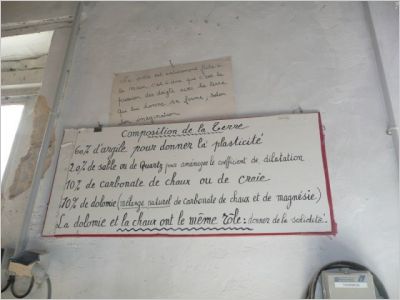 La poterie est entièrement faite à
la main c'est à dire que c'est la
pression des doigts avec la terre
qui lui donne sa forme, selon
son imagination
Composition de la Terre
60% d'argile pour donner la plasticité
20% de sable ou de Quartz pour aménager le coefficient de dilatation
10% de carbonate de chaux ou de craie
10% de dolomie (mélange naturel de carbonate de chaux et de magnésie)
La dolomie et la chaux ont le même rôle : donner de la solidité.